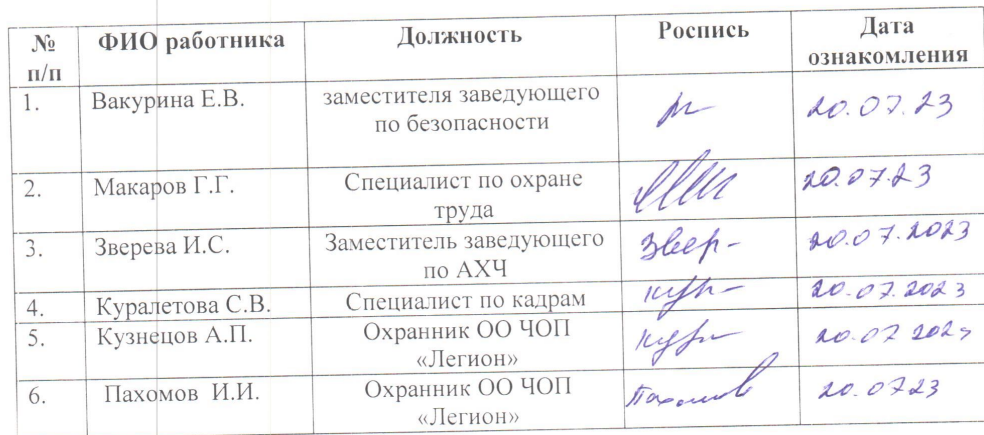 № п/п ФИО работника Должность Роспись Дата ознакомления
1. Вакурина Е.В. заместителя заведующего по безопасности 20.07.23
2. Макаров Г.Г. Специалист по охране труда 20.07.23
3. Зверева И.С. Заместитель заведующего по АХЧ Звер- 20.07.2023
4. Куралетова С.В. Специалист по кадрам 20.07.2023
5. Кузнецов А.П. Охранник ОО ЧОП «Легион» 20.07
6. Пахомов И.И. Охранник ОО ЧОП «Легион» Пахомов 20.0723